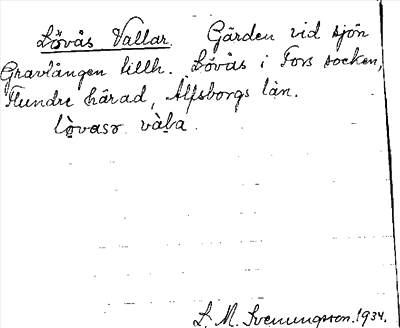 Lövås Vallar. Gärden vid sjön
Gravlången tillh. Lövås i Fors socken,
Flundre härad, Älfsborgs län.
lò̤vasɷ vàl̤a.
L. M. Svenungsson. 1934.